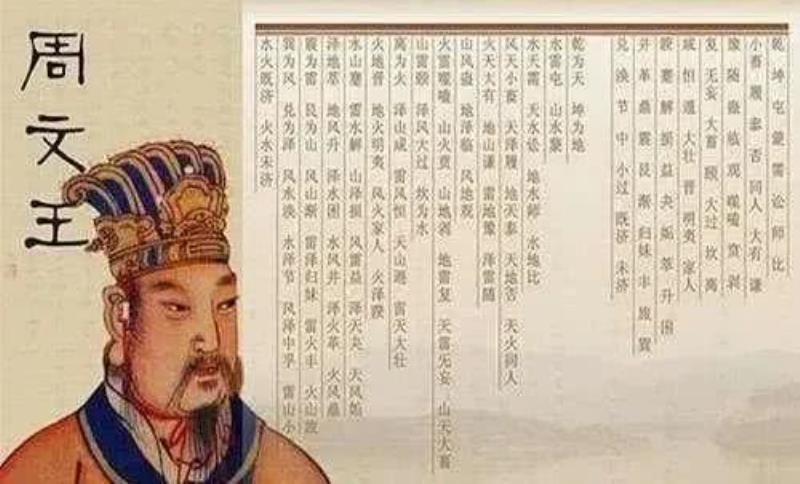 周文王
乾 坤 屯 蒙 需 讼 师 比
小畜 履 泰 否 同人 大有 谦
豫 随 蛊 临 观 噬嗑 贲 剥
复 无妄 大畜 颐 大过 坎 离
咸 恒 遁 大壮 晋 明夷 家人
睽 蹇 解 损 益 夬 姤 萃 升 困
井 革 鼎 震 艮 渐 归妹 丰 旅 巽
兑 涣 节 中 小过 既济 未济
乾为天 坤为地
水雷屯 山水蒙
水天需 天水讼 地水师 水地比
风天小畜 天泽履 地天泰 天地否 天火同人
火天大有 地山谦 雷地豫 泽雷随
山风蛊 地泽临 风地观
火雷噬嗑 山火贲 山地剥 地雷复 天雷无妄 山天大畜
山雷颐 泽风大过 坎为水
离为火 泽山咸 雷风恒 天山遯 雷天大壮
火地晋 地火明夷 风火家人 火泽睽
水山蹇 雷水解 山泽损 风雷益 泽天夬 天风姤
泽地萃 地风升 泽水困 水风井 泽火革 火风鼎
震为雷 艮为山 风山渐 雷泽归妹 雷火丰 火山旅
巽为风 兑为泽 风水涣 水泽节 风泽中孚 雷山小
水火既济 火水未济